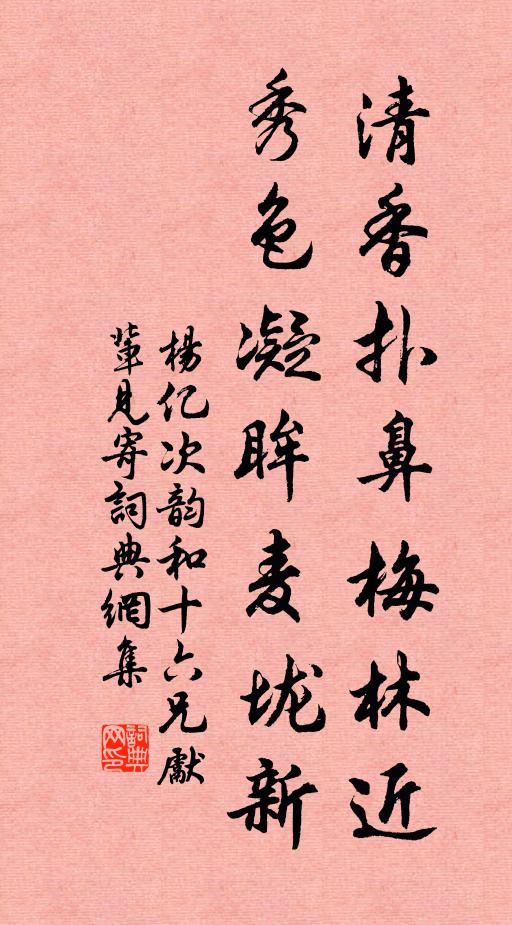 清香扑鼻梅林近
秀色凝眸麦垅新
楊亿次韵和十六兄獻
辈見寄詞典網集
詞典网印